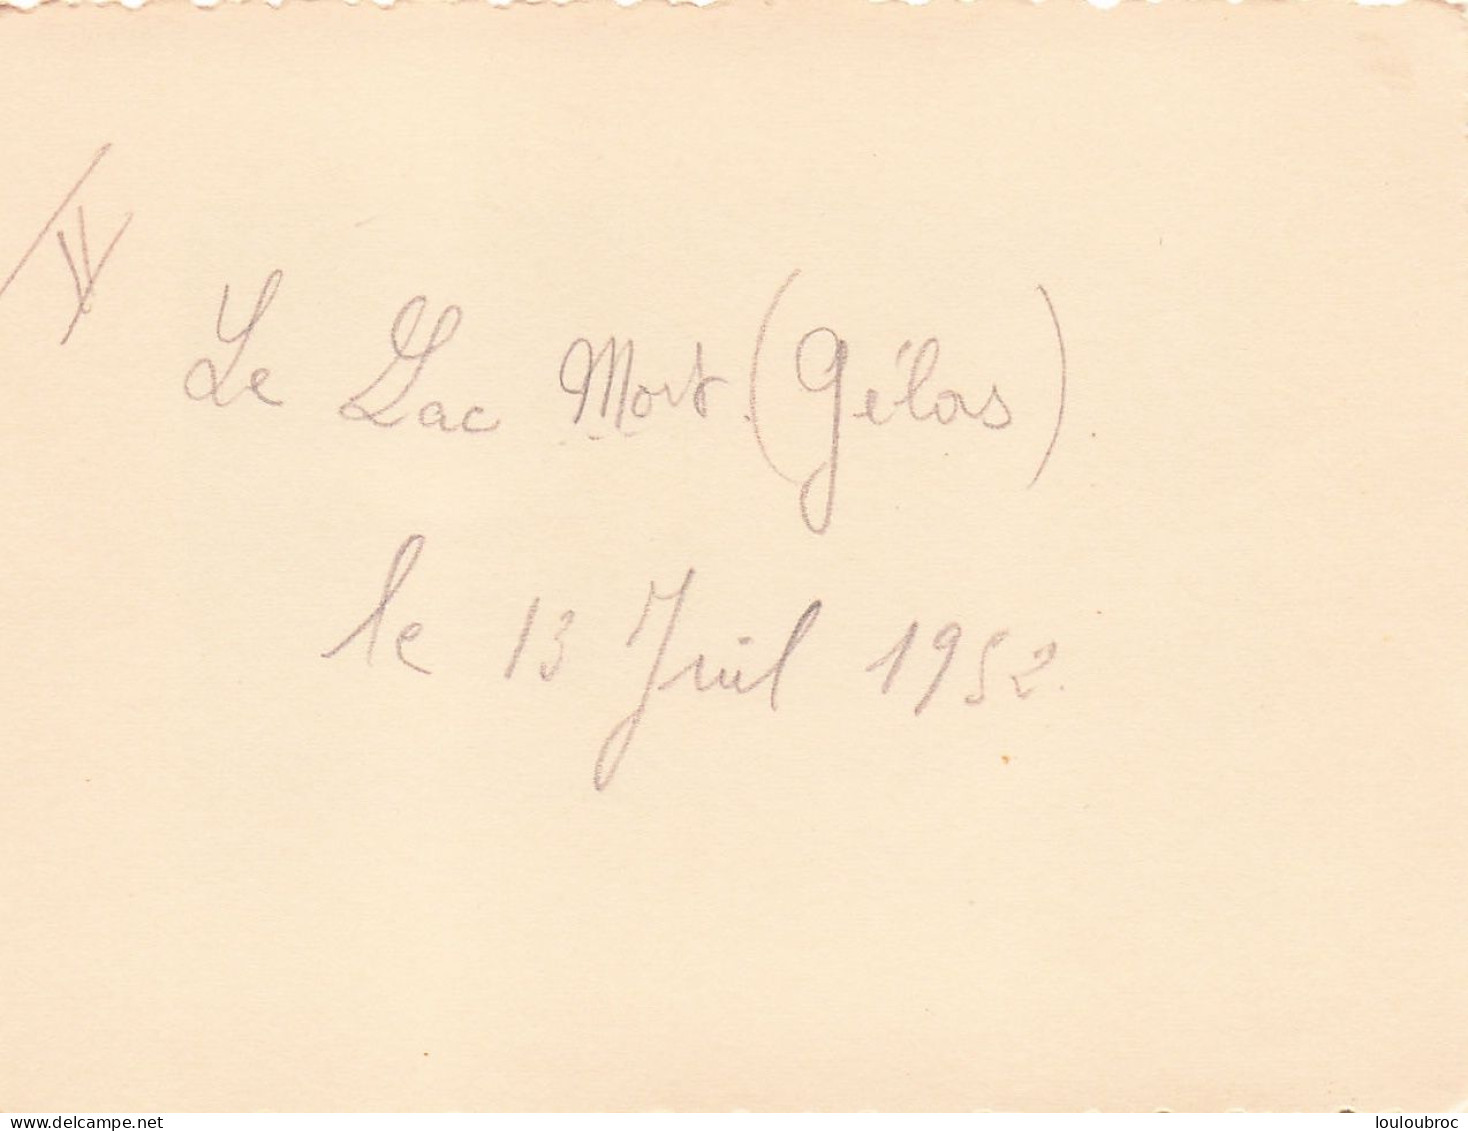 Le Lac Mort (Gélas).
le 13 Juil 1952.
delcampe.net
louloubroc